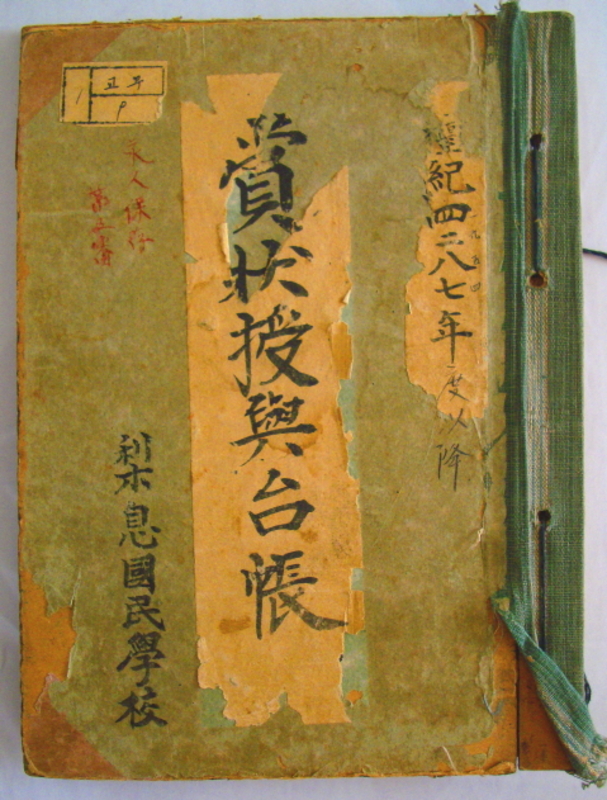 檀紀四二八七年度以降
賞狀授與台帳
교무
1
9
永久保存
梨息國民學校